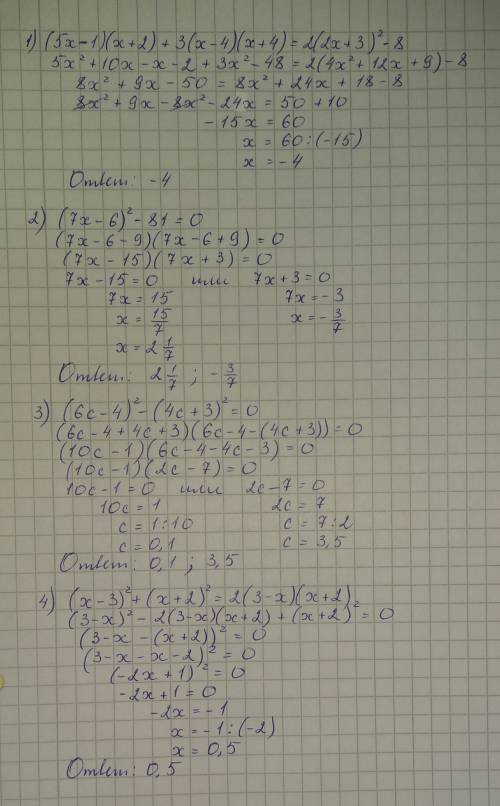 1) (5x-1)(x+2) + 3(x-4)(x+4) = 2(2x+3)²-8
5x² + 10x - x - 2 + 3x² - 48 = 2(4x² + 12x + 9) - 8
8x² + 9x - 50 = 8x² + 24x + 18 - 8
8x² + 9x - 8x² - 24x = 50 + 10
- 15x = 60
x = 60 : (-15)
x = - 4
Ответ: -4
2) (7x - 6)² - 81 = 0
(7x - 6 - 9)(7x - 6 + 9) = 0
(7x - 15)(7x + 3) = 0
7x - 15 = 0 или 7x + 3 = 0
7x = 15 7x = - 3
x = 15/7 x = - 3/7
x = 2 1/7
Ответ: 2 1/7 ; - 3/7
3) (6c - 4)² - (4c + 3)² = 0
(6c - 4 + 4c + 3)(6c - 4 - (4c + 3)) = 0
(10c - 1)(6c - 4 - 4c - 3) = 0
(10c - 1)(2c - 7) = 0
10c - 1 = 0 или 2c - 7 = 0
10c = 1 2c = 7
c = 1 : 10 c = 7 : 2
c = 0,1 c = 3,5
Ответ: 0,1 ; 3,5
4) (x - 3)² + (x + 2)² = 2(3 - x)(x + 2)
(3 - x)² - 2(3 - x)(x + 2) + (x + 2)² = 0
(3 - x - (x + 2))² = 0
(3 - x - x - 2)² = 0
(-2x + 1)² = 0
-2x + 1 = 0
-2x = -1
x = -1 : (-2)
x = 0,5
Ответ: 0,5